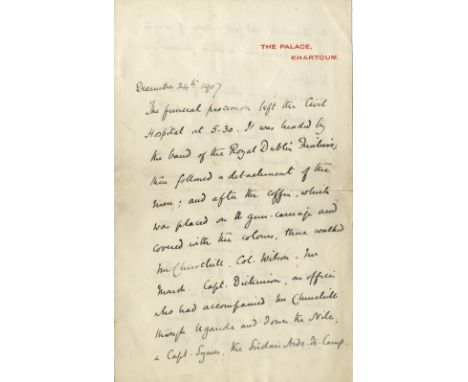 THE PALACE,
KHARTOUM.
December 24th 1907
The funeral procession left the Civil
Hospital at 5.30. It was headed by
the band of the Royal Dublin Fusiliers,
then followed a detachment of the
men; and after the coffin, which
was placed on a gun-carriage and
covered with the colours, there walked
Mr Churchill. Col. Wilson. Mr
Marsh. Capt. Dickinson, an officer
who had accompanied Mr Churchill
through Uganda and down the Nile,
& Capt. Symes, the Sirdar's Aide-de-Camp.